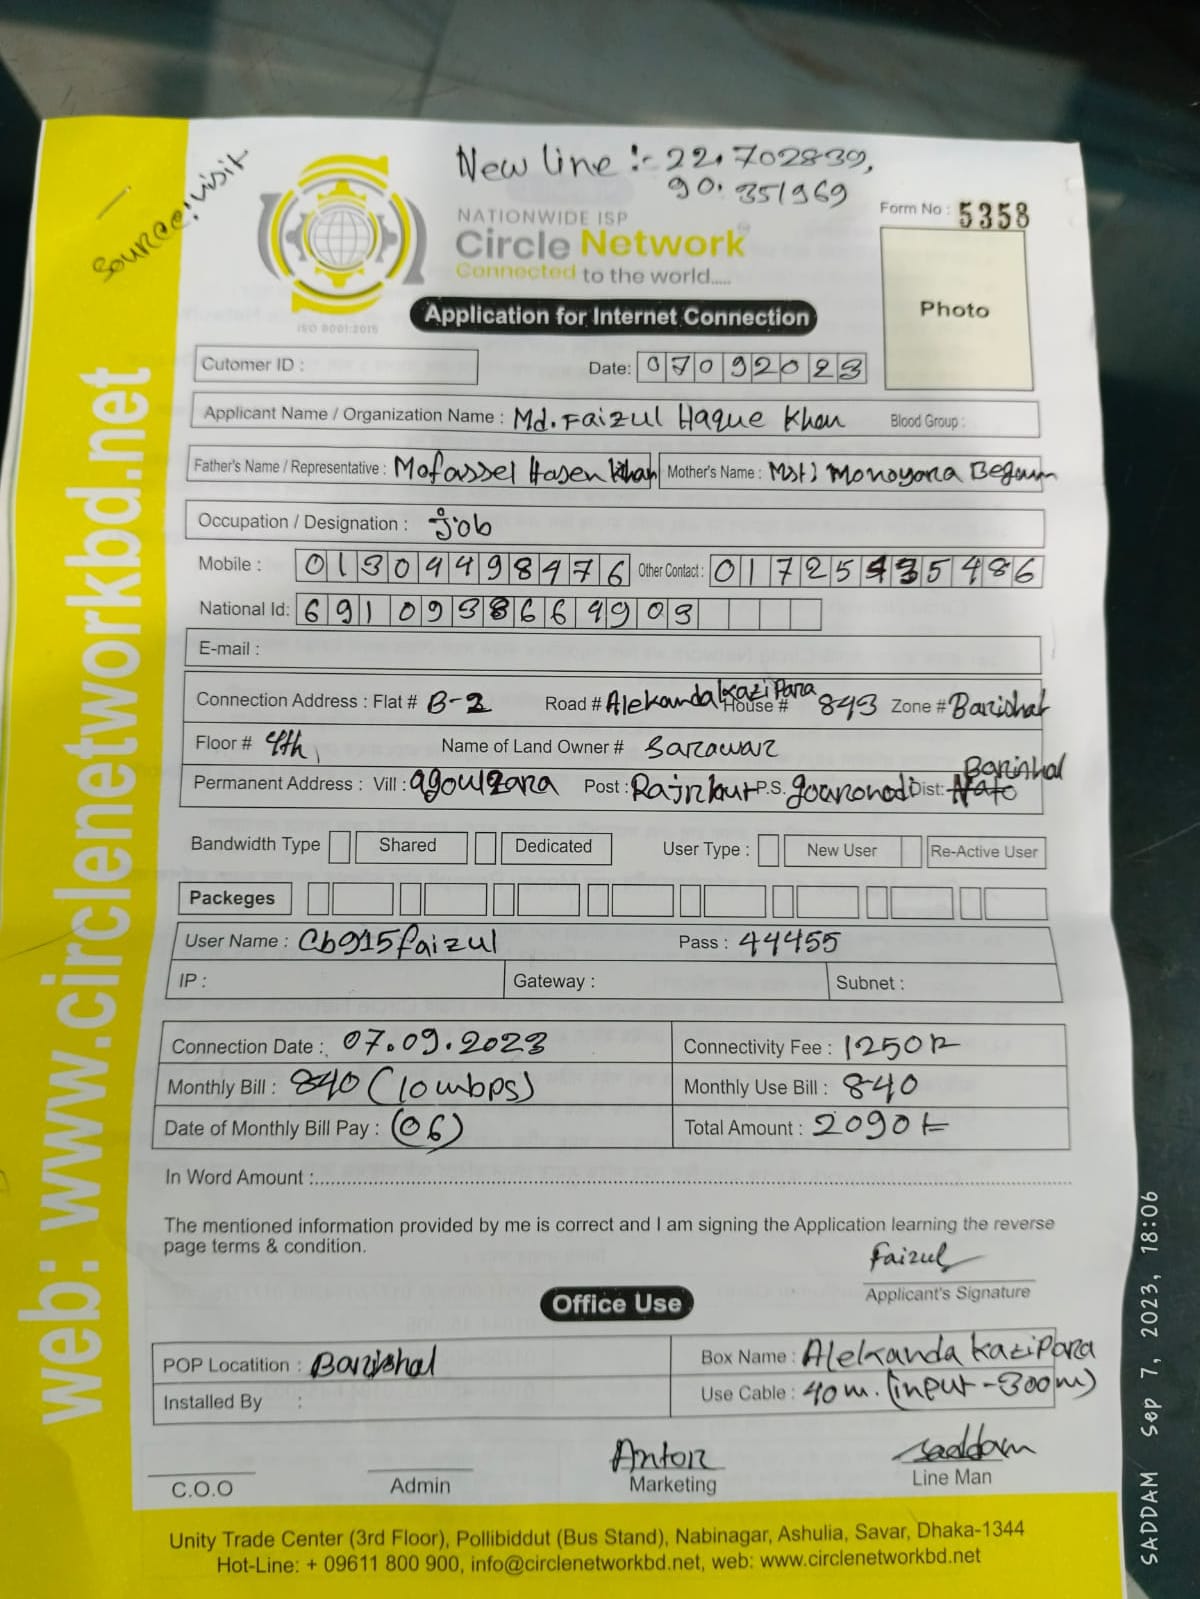 Source: visit
New line :- 22.702839,
90.351969
NATIONWIDE ISP
Circle Network
Connected to the world.....
ISO 9001:2015
Form No : 5358
Photo
Application for Internet Connection
Cutomer ID :
Date: 07092023
Applicant Name / Organization Name : Md. Faizul Haque Khan Blood Group :
Father's Name / Representative : Mofassel Hasen Khan Mother's Name : Mst: Monoyara Begum
Occupation / Designation : Job
Mobile : 013094498476 Other Contact : 01725435486
National Id: 6910938664903
E-mail :
Connection Address : Flat # B-2 Road # Alekanda Kazi Para House # 843 Zone # Barishal
Floor # 4th, Name of Land Owner # Sarawar
Permanent Address : Vill : Post : P.S. Dist: Barishal
Bandwidth Type Shared Dedicated User Type : New User Re-Active User
Packeges
User Name : Cb915faizul Pass : 44455
IP : Gateway : Subnet :
Connection Date : 07.09.2023 Connectivity Fee : 1250
Monthly Bill : 840 (10 mbps) Monthly Use Bill : 840
Date of Monthly Bill Pay : (06) Total Amount : 2090
In Word Amount :
The mentioned information provided by me is correct and I am signing the Application learning the reverse
page terms & condition.
Faizul
Applicant's Signature
Office Use
POP Locatition : Barishal Box Name : Alekanda Kazi Para
Installed By : Use Cable : 40 m. (input - 300m)
Anton saddam
C.O.O Admin Marketing Line Man
Unity Trade Center (3rd Floor), Pollibiddut (Bus Stand), Nabinagar, Ashulia, Savar, Dhaka-1344
Hot-Line: + 09611 800 900, info@circlenetworkbd.net, web: www.circlenetworkbd.net
web: www.circlenetworkbd.net
SADDAM Sep 7, 2023, 18:06